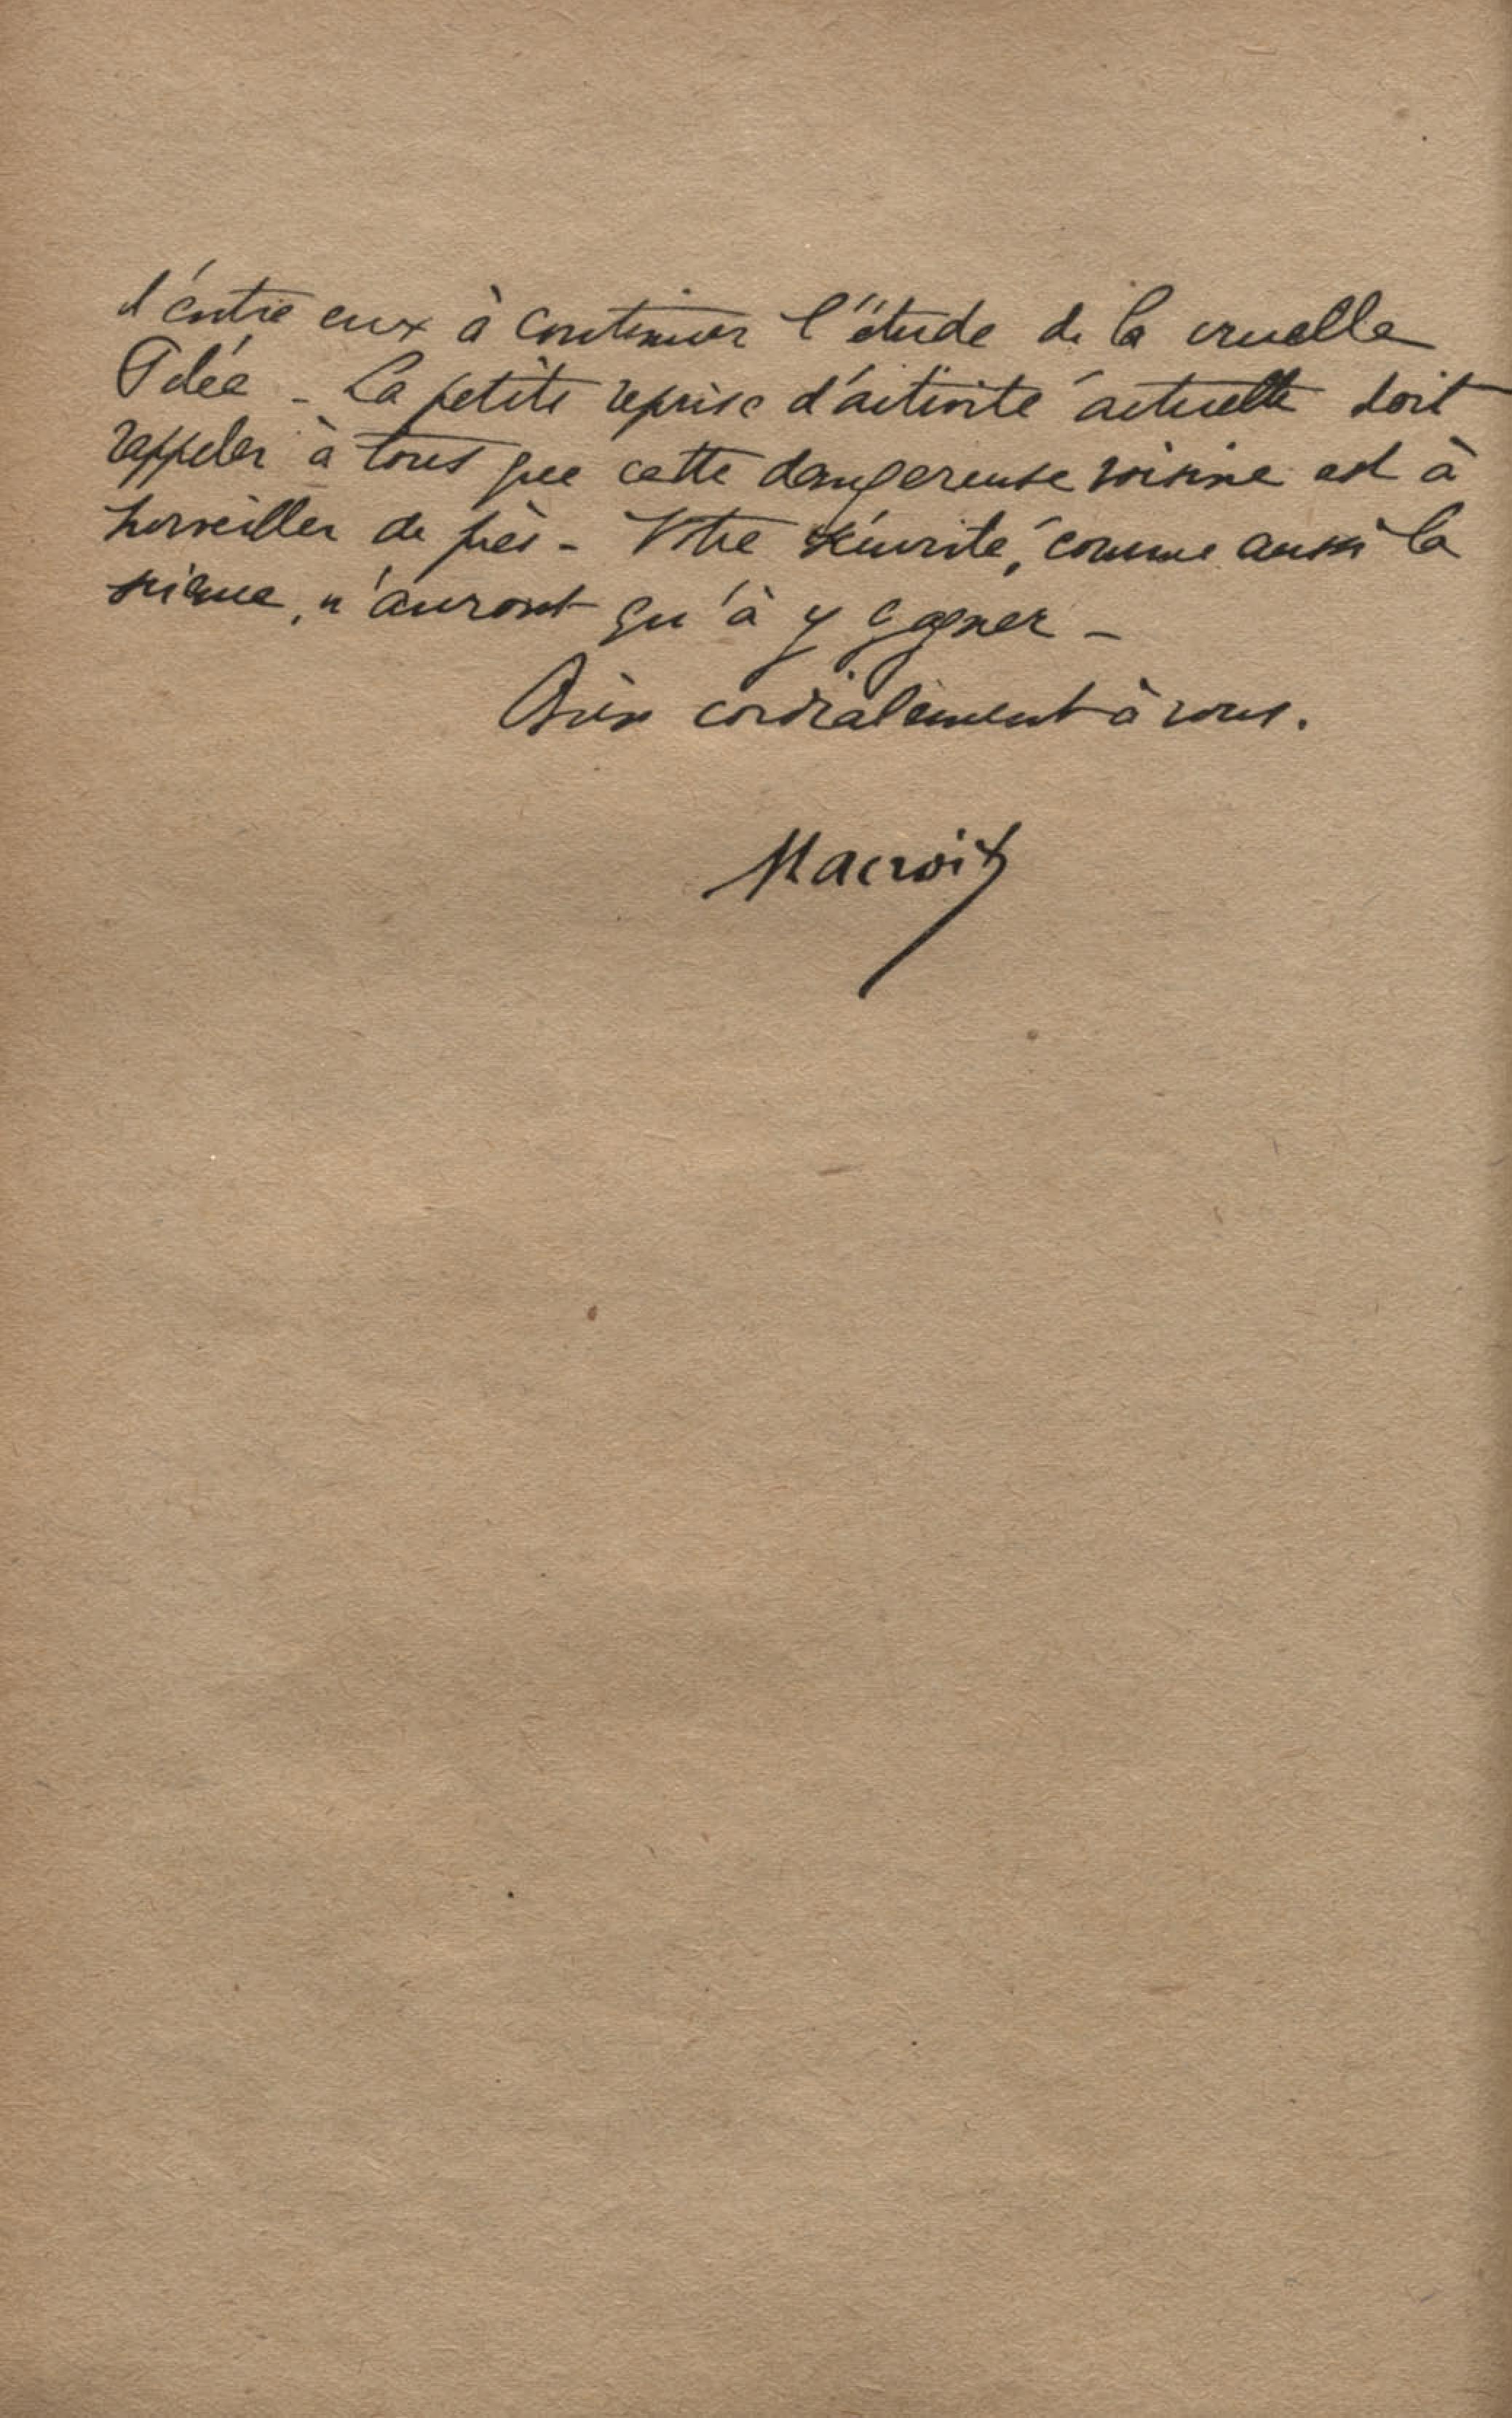 d'entre eux à continuer l'étude de la cruelle
Pelée - La petite reprise d'activité actuelle doit
rappeler à tous que cette dangereuse voisine est à
surveiller de près - Votre sécurité, comme aussi la
science, n'auront qu'à y gagner -
Bien cordialement à vous.